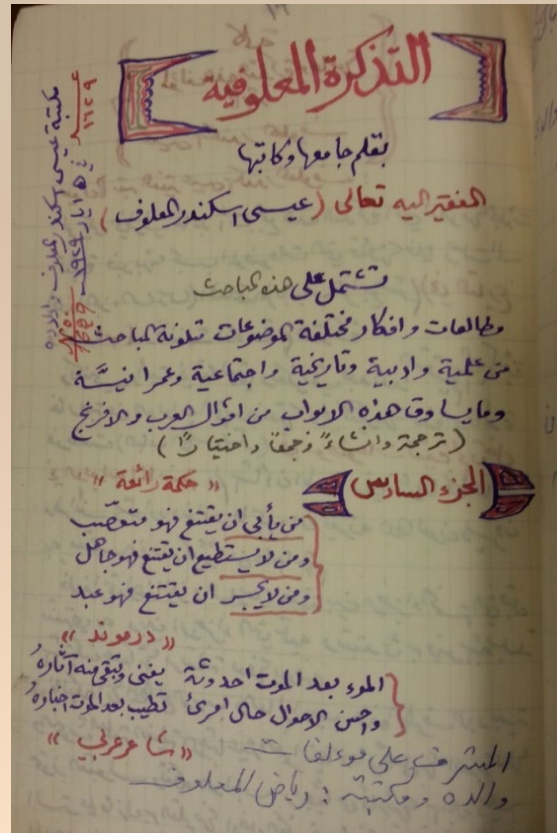 التذكرة المعلوفية
بقلم جامعها وكاتبها
الفقير اليه تعالى (عيسى اسكندر المعلوف)
تشتمل على هذه المباحث
مطالعات وافكار مختلفة الموضوعات متلونة المباحث
من علمية وادبية وتاريخية واجتماعية وعمرانية
وما يساوق هذه الابواب من اقوال العرب والافرنج
(ترجمة وانشاءً وجمعاً واختياراً)
الجزء السادس
« حكمة رائعة »
من يأبى ان يقتنع فهو متعصّب
ومن لا يستطيع ان يقتنع فهو جاهل
ومن لا يجسر ان يقتنع فهو عبد
« درموند »
المرء بعد الموت احدوثة يفنى وتبقى منه آثارهُ
واحسن الاحوال حال امرئ تطيب بعد الموت اخبارهُ
« شاعر عربي »
المشرف على مؤلفات
والده ومكتبته : رياض المعلوف
مكتبة عيسى اسكندر المعلوف واولاده
في ١٥ ايار ١٩٢٩